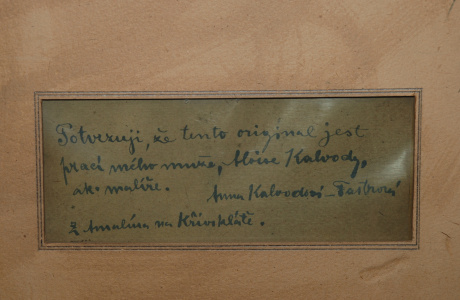 Potvrzuji, že tento originál jest
prací mého muže, Aloise Kalvody,
ako malíře.
Anna Kalvodová-
z Amalína na Křivoklátě.